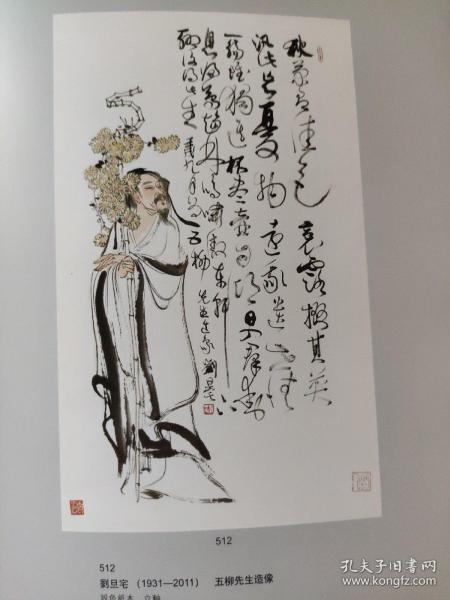 秋菊有佳色裛露掇其英
汎此忘憂物遠我遺世情
一觴雖獨進杯盡壺自傾日入群動
息歸鳥趨林鳴嘯傲東軒下
聊復得此生
九月寫五柳先生造像劉旦宅
512
512
劉旦宅 (1931—2011) 五柳先生造像
設色紙本 立軸
孔夫子旧书网